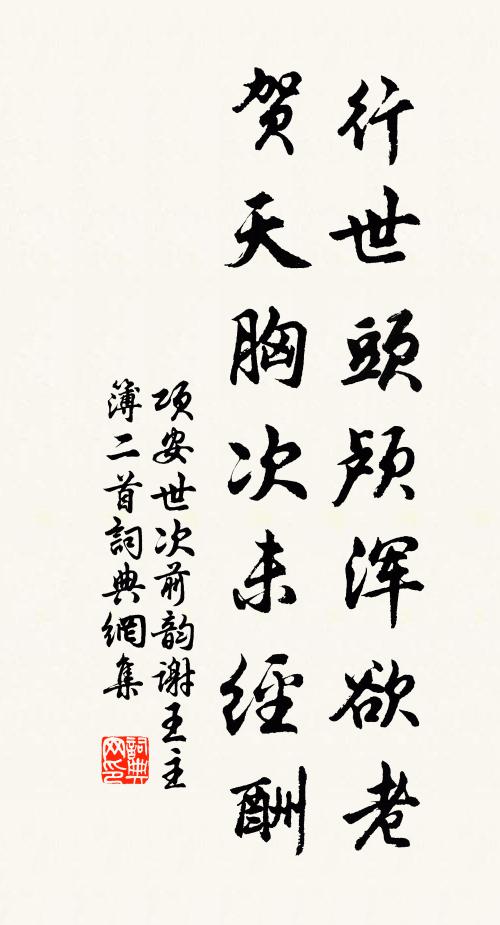 行世頭颅浑欲老
贺天胸次未經酬
项安世次前韵谢王主
簿二首詞典網集
詞典网印